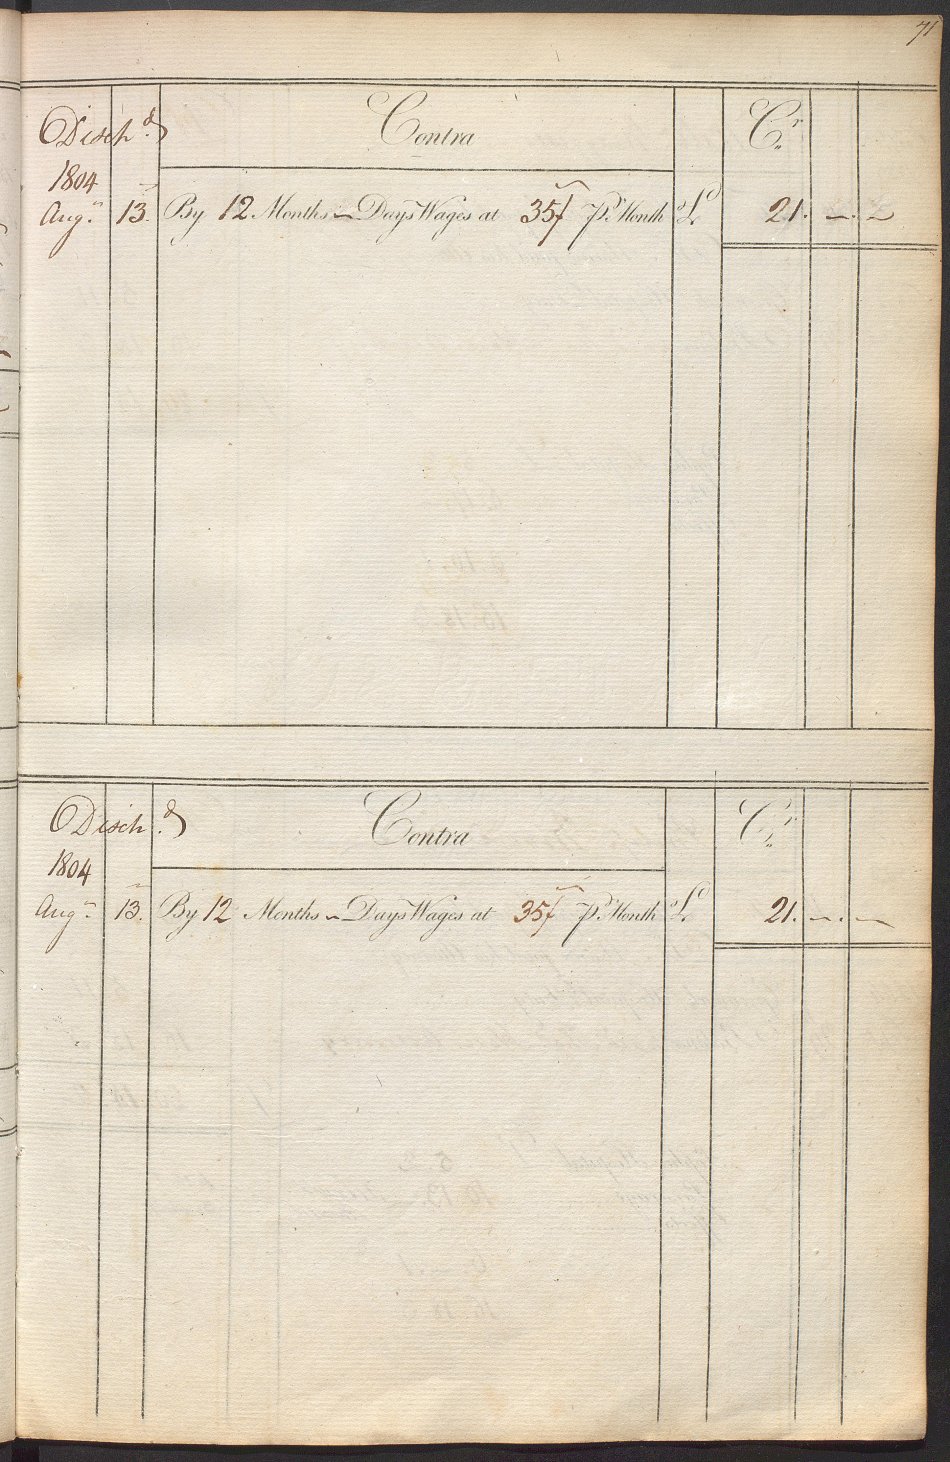 71
Disch.d Contra Cr.
1804
Aug.t 13. By 12 Months - Days Wages at 35/ Pr. Month £ 21. - . -
Disch.d Contra Cr.
1804
Aug.t 13. By 12 Months - Days Wages at 35/ Pr. Month £ 21. - . -